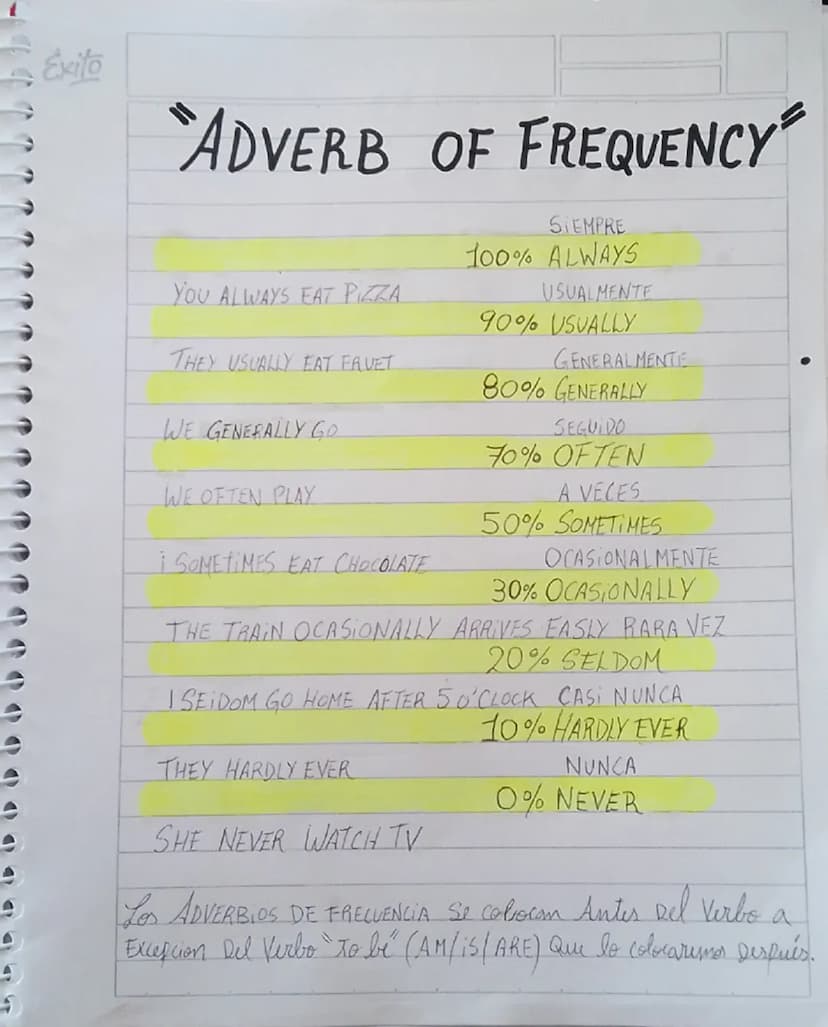 Éxito
"ADVERB OF FREQUENCY"
SIEMPRE
100% ALWAYS
YOU ALWAYS EAT PIZZA USUALMENTE
90% USUALLY
THEY USUALLY EAT FRUET GENERALMENTE
80% GENERALLY
WE GENERALLY GO SEGUIDO
70% OFTEN
WE OFTEN PLAY A VECES
50% SOMETIMES
I SOMETIMES EAT CHOCOLATE OCASIONALMENTE
30% OCASIONALLY
THE TRAIN OCASIONALLY ARRIVES EASLY RARA VEZ
20% SELDOM
I SEIDOM GO HOME AFTER 5 O'CLOCK CASI NUNCA
10% HARDLY EVER
THEY HARDLY EVER NUNCA
0% NEVER
SHE NEVER WATCH TV
Los ADVERBIOS DE FRECUENCIA Se colocan Antes Del Verbo a
Excepcion Del Verbo "To be" (AM/iS/ARE) Que lo colocaremos Después.